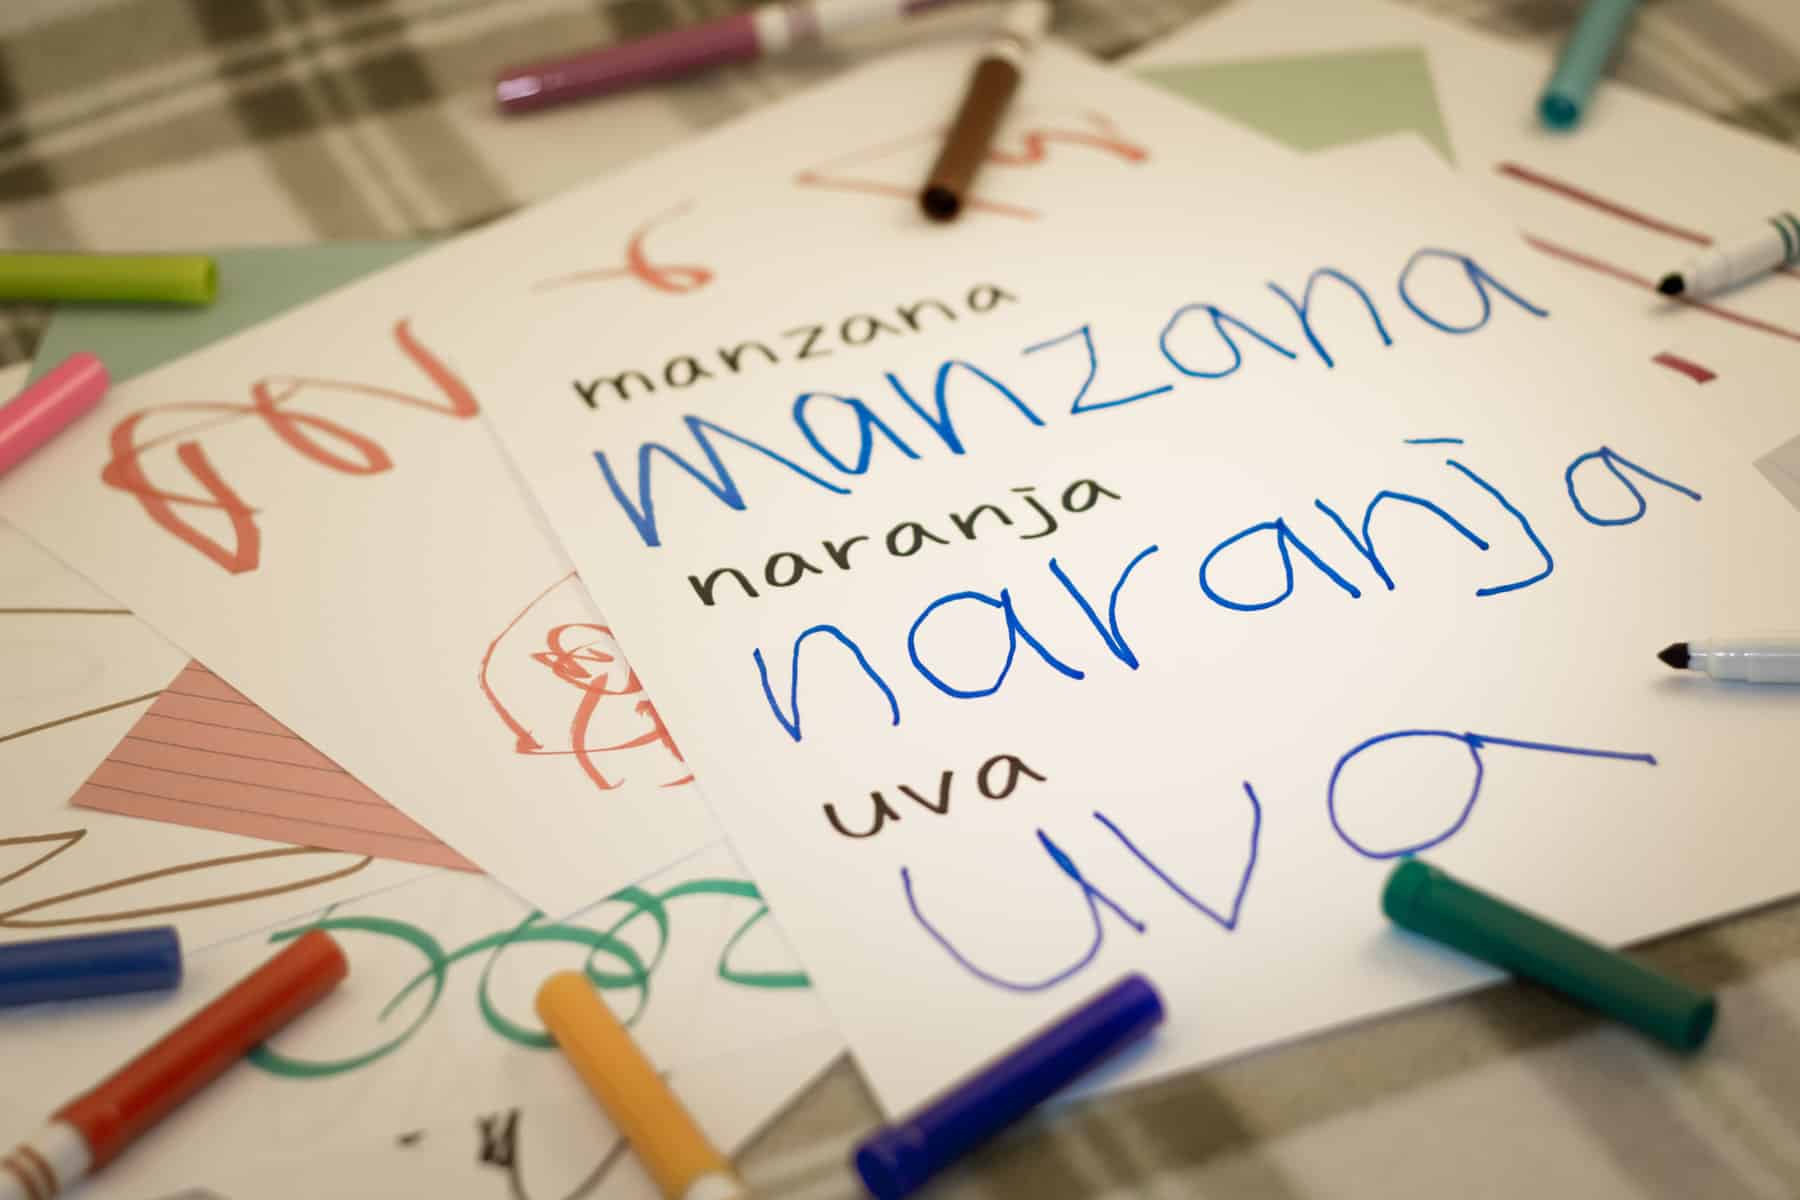 manzana
manzana
naranja
naranja
uva
uva